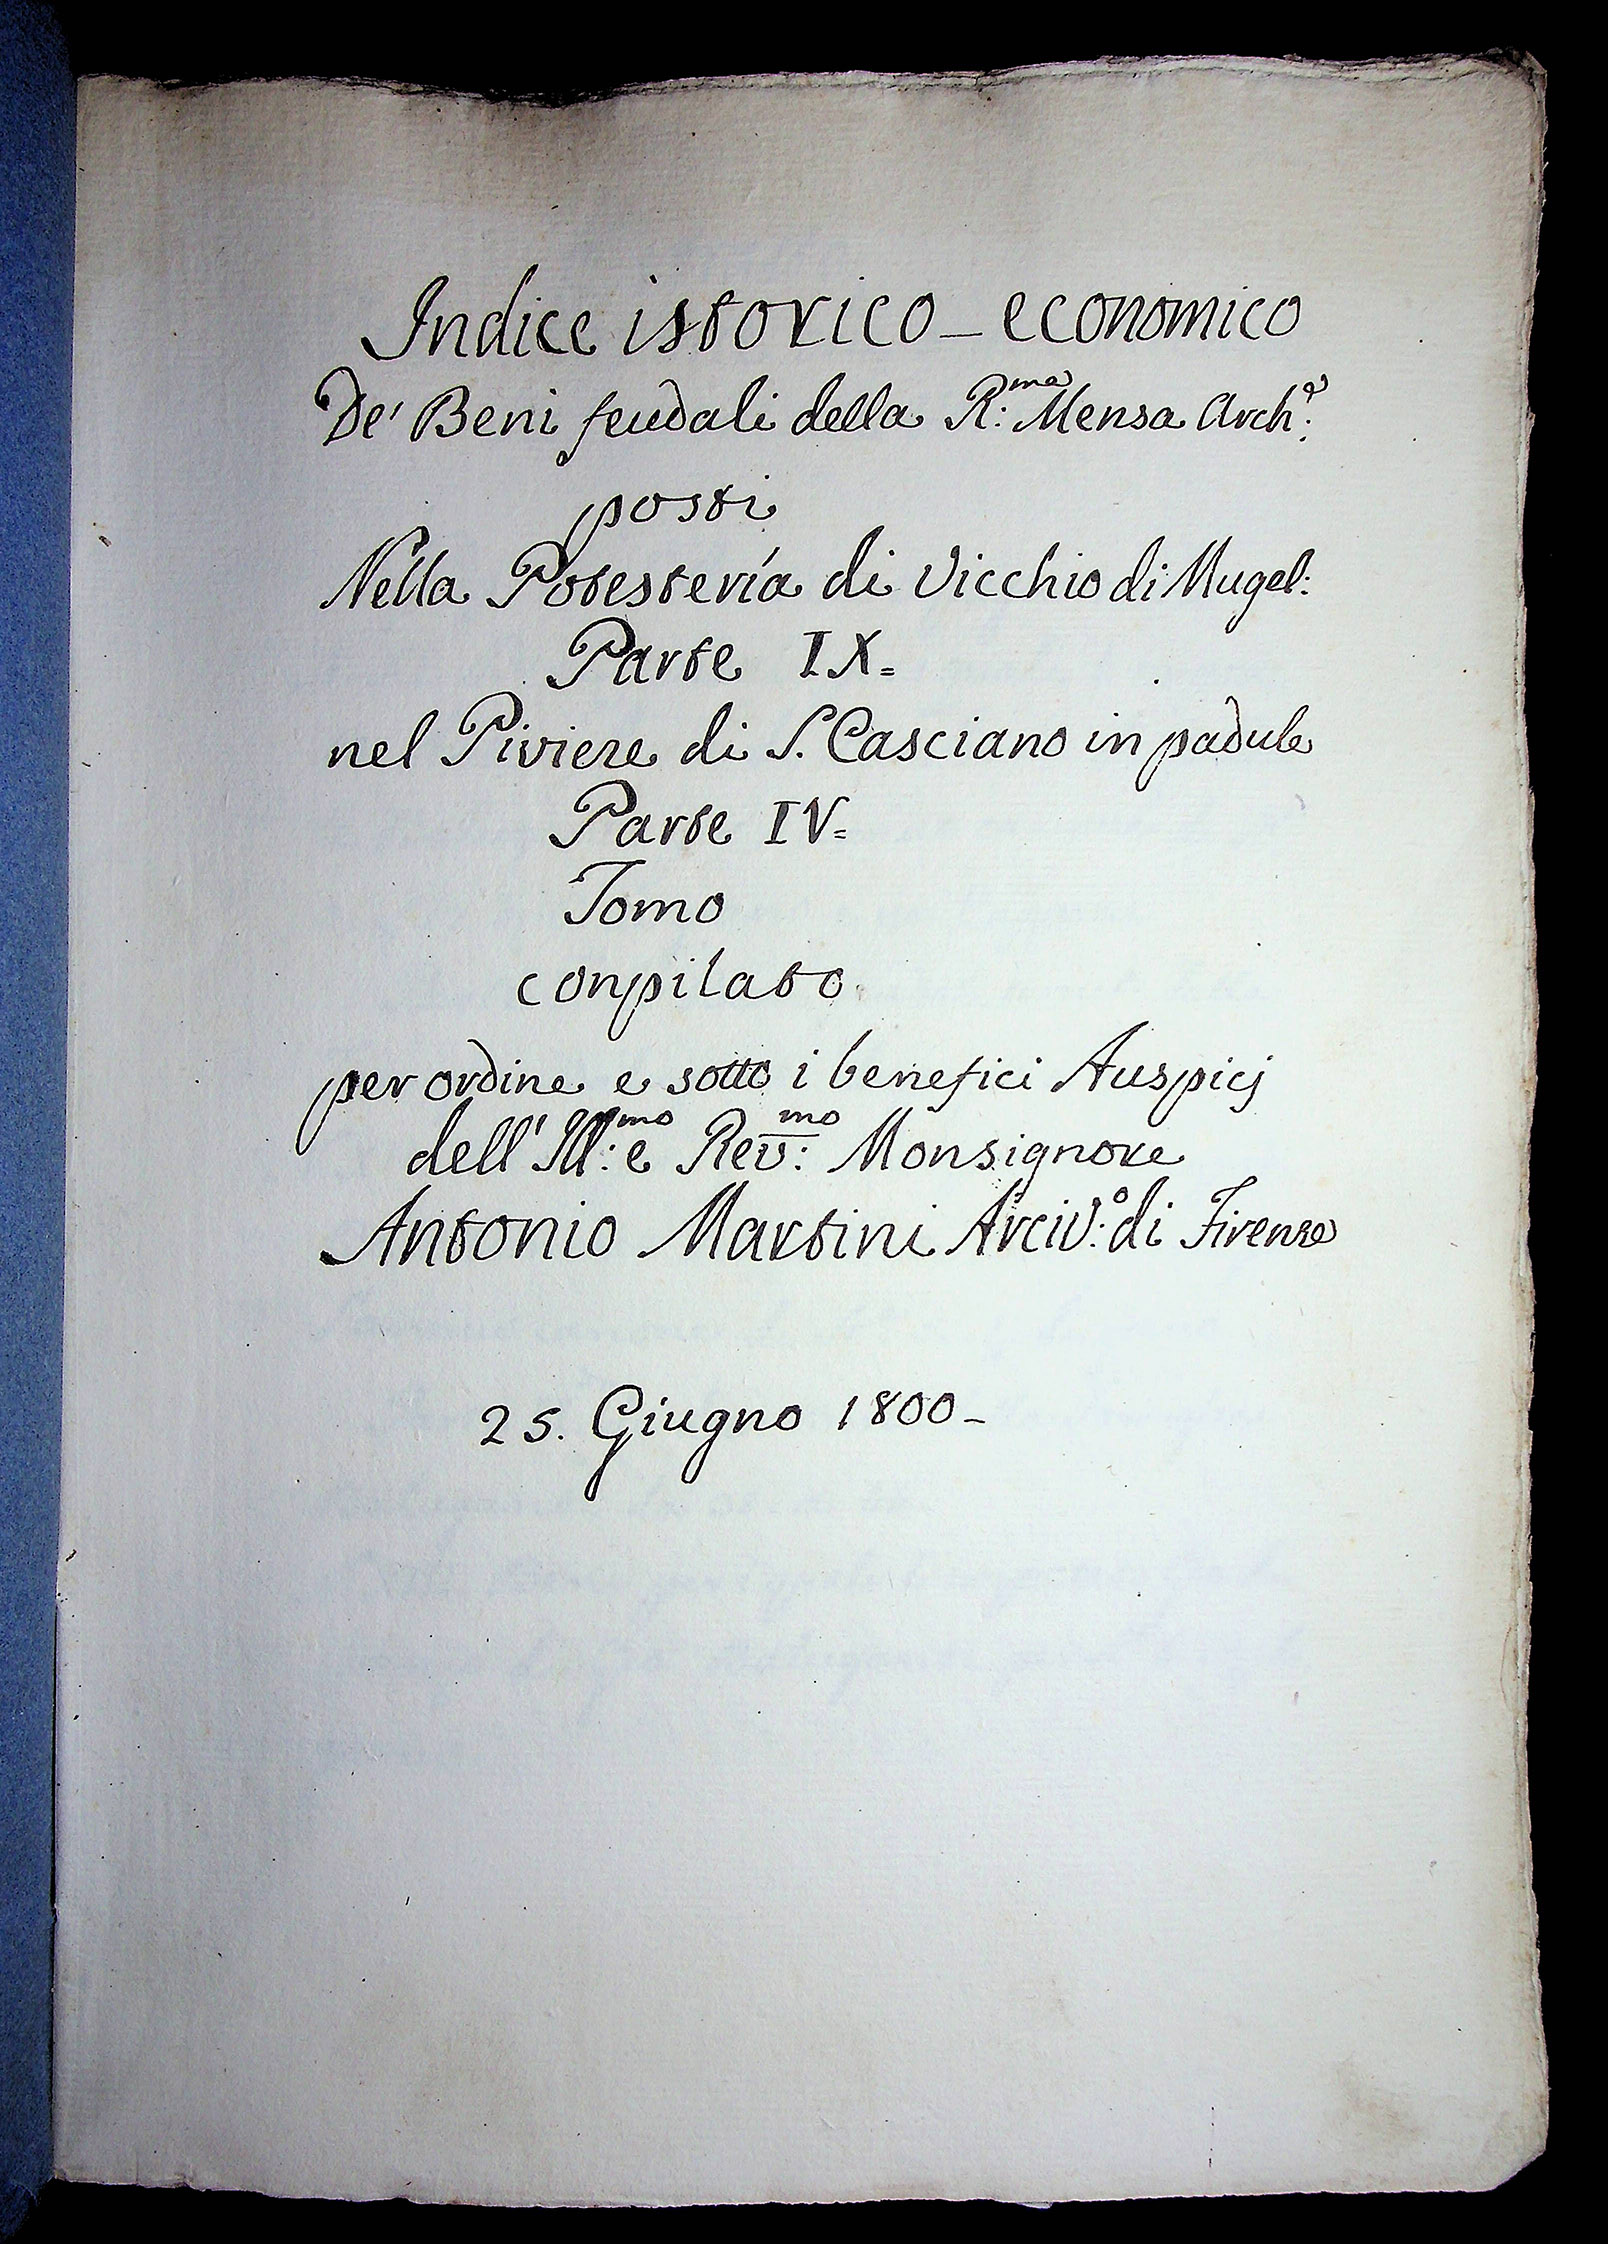 Indice istorico - economico
De' Beni feudali della R:ma Mensa Arch:e
posti
Nella Potestería di Vicchio di Mugel:
Parte IX=
nel Piviere di S. Casciano in padule
Parte IV=
Tomo
conpilato
per ordine e sotto i benefici Auspicj
dell' Ill:mo e Rev:mo Monsignore
Antonio Martini Arciv:o di Firenze
25. Giugno 1800-